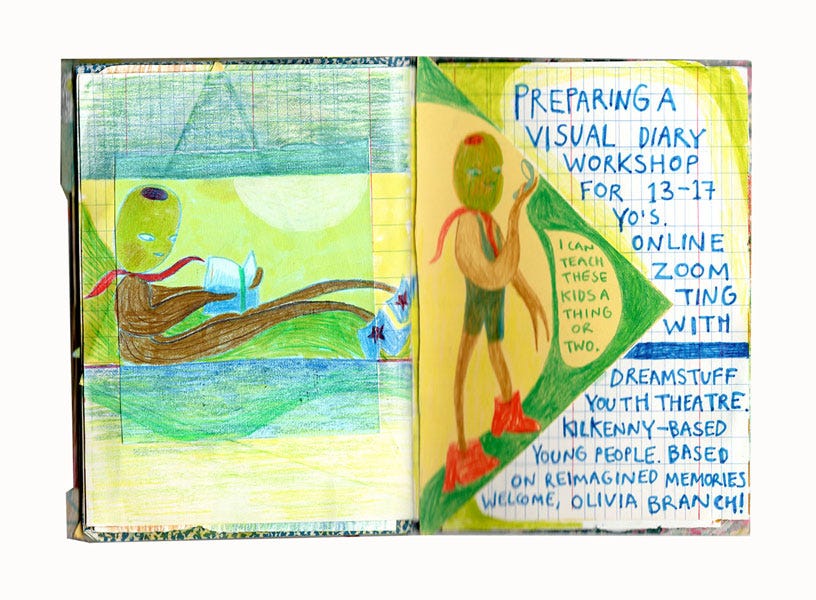 PREPARING A
VISUAL DIARY
WORKSHOP
FOR 13-17
YO'S.
ONLINE
ZOOM
TING
WITH
DREAMSTUFF
YOUTH THEATRE.
KILKENNY-BASED
YOUNG PEOPLE. BASED
ON REIMAGINED MEMORIES
WELCOME, OLIVIA BRANCH!
I CAN
TEACH
THESE
KIDS A
THING
OR
TWO.